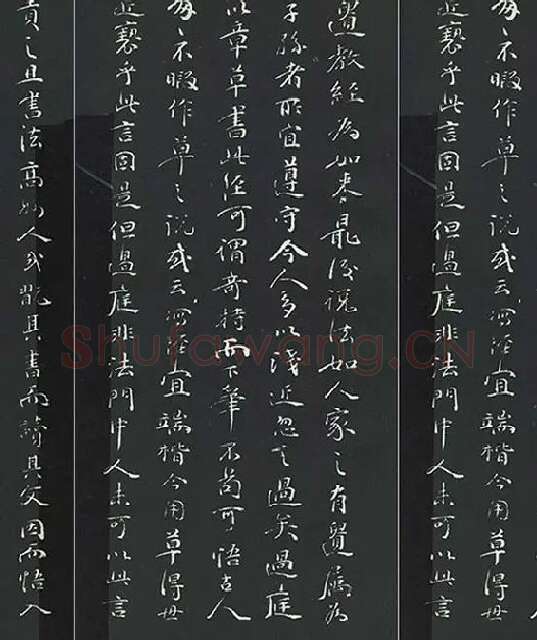 匆不暇作草之說或云寫經宜端楷今用草得毋
近褻乎此言固是但過庭非法門中人未可以此言
遺教經為如來最後說法如人家之有遺屬為
子孫者所宜遵守今人多以淺近忽之過矣過庭
以章草書此經可謂奇特而下筆不苟可悟古人
匆不暇作草之說或云寫經宜端楷今用草得毋
近褻乎此言固是但過庭非法門中人未可以此言
責之且書法高妙人或翫其書而讀其文因而悟入
Shufawang.CN